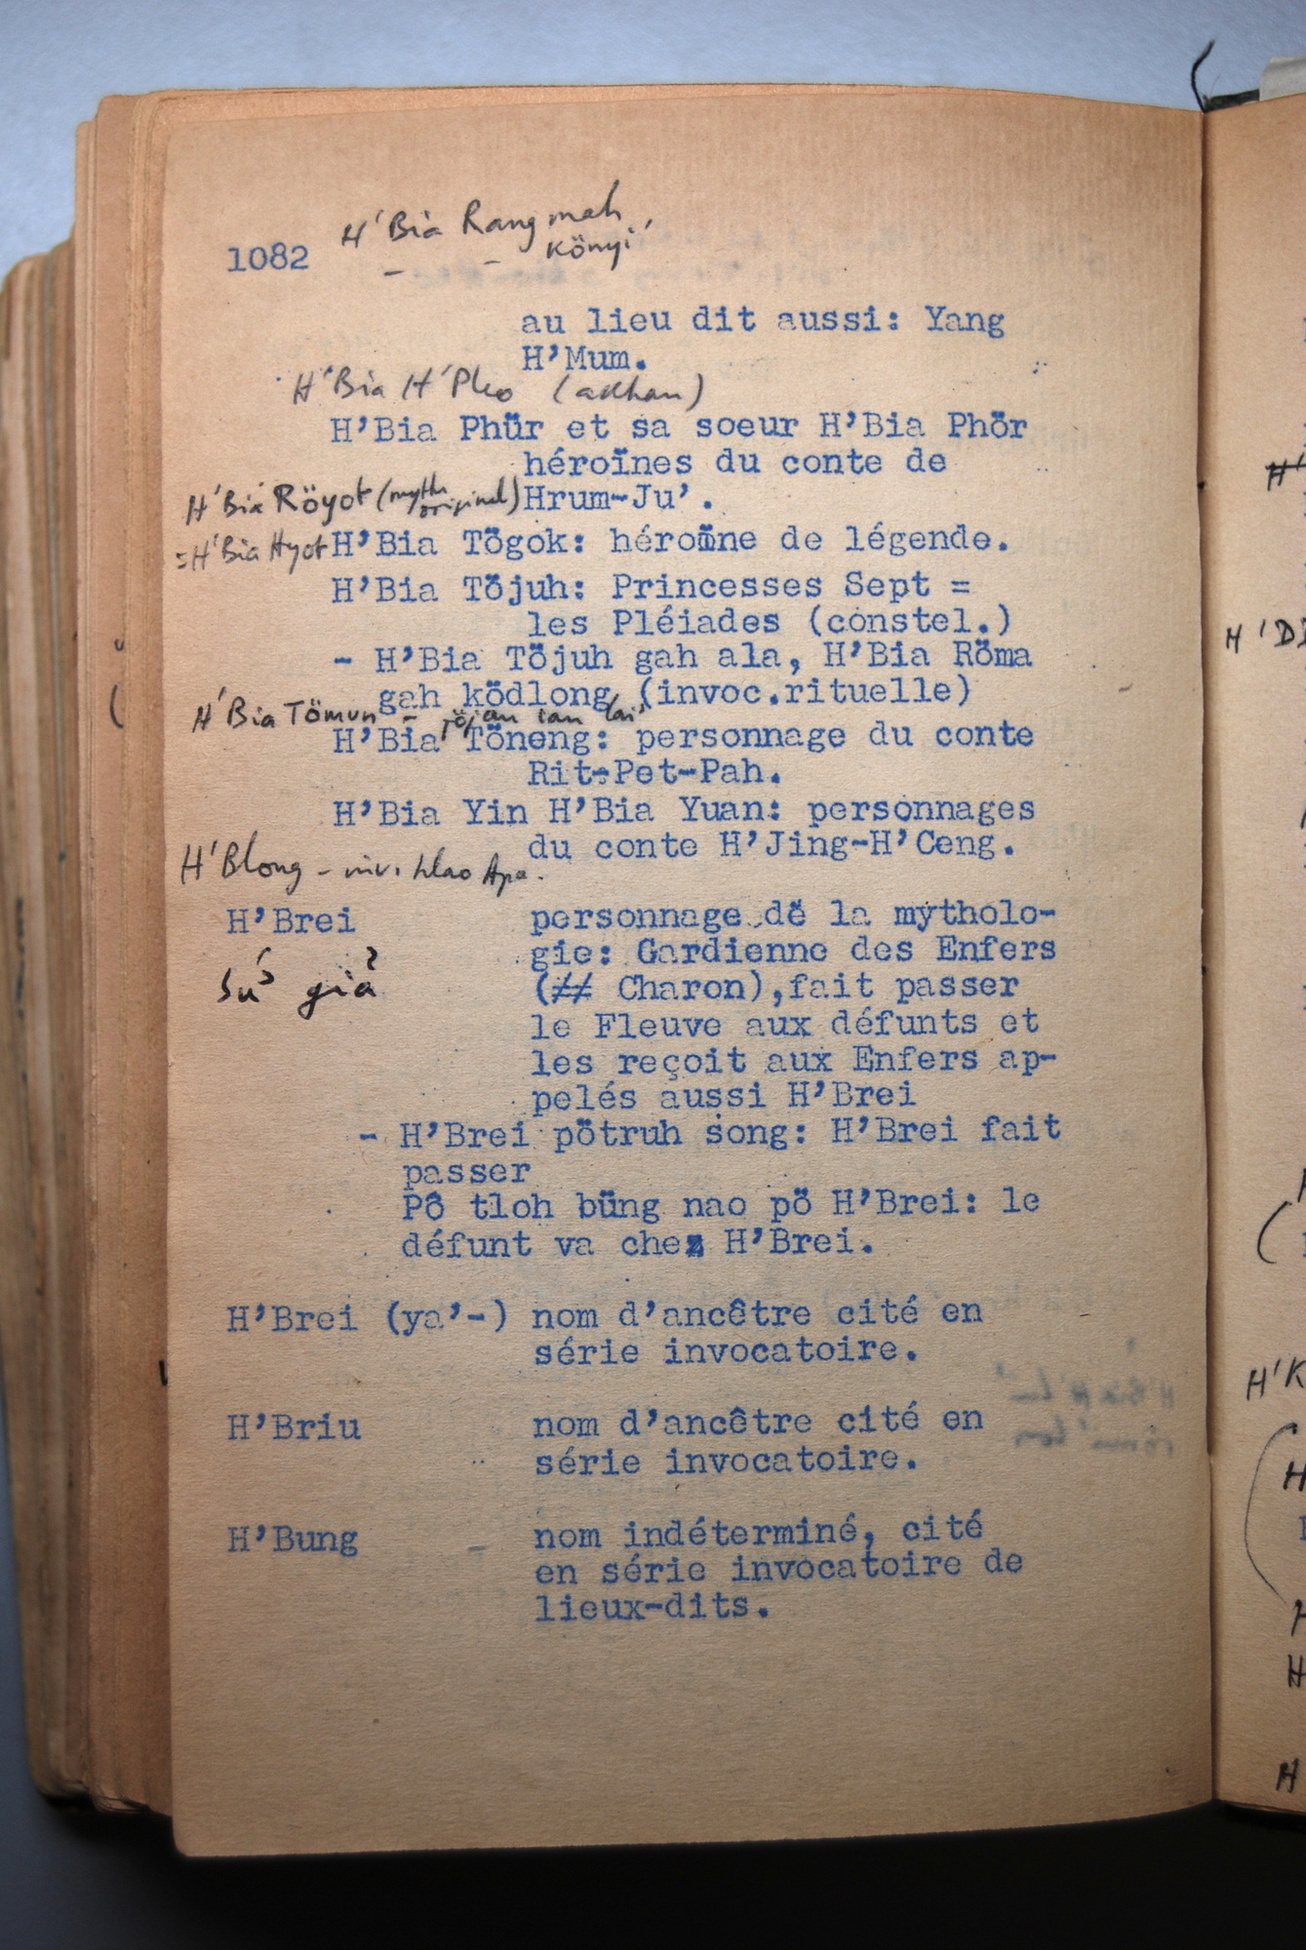 H'Bia Rang mah
könyi'
1082
au lieu dit aussi: Yang
H'Mum.
H'Bia H'Pleo (akhan)
H'Bia Phür et sa soeur H'Bia Phör
héroïnes du conte de
H'Bia Röyot (mythe originel) Hrum-Ju'.
=H'Bia Hyot H'Bia Tögok: héroïne de légende.
H'Bia Töjuh: Princesses Sept =
les Pléiades (constel.)
- H'Bia Töjuh gah ala, H'Bia Röma
gah ködlong (invoc.rituelle)
H'Bia Tömun - töjan ian lai'
H'Bia Töneng: personnage du conte
Rit-Pet-Pah.
H'Bia Yin H'Bia Yuan: personnages
du conte H'Jing-H'Ceng.
H'Blong - hlao Apa.
H'Brei personnage de la mytholo-
gie: Gardienne des Enfers
(≠≠ Charon),fait passer
Sứ giả
le Fleuve aux défunts et
les reçoit aux Enfers ap-
pelés aussi H'Brei
- H'Brei pötruh song: H'Brei fait
passer
Pô tloh büng nao pö H'Brei: le
défunt va chez H'Brei.
H'Brei (ya'-) nom d'ancêtre cité en
série invocatoire.
H'Briu nom d'ancêtre cité en
série invocatoire.
H'Bung nom indéterminé, cité
en série invocatoire de
lieux-dits.